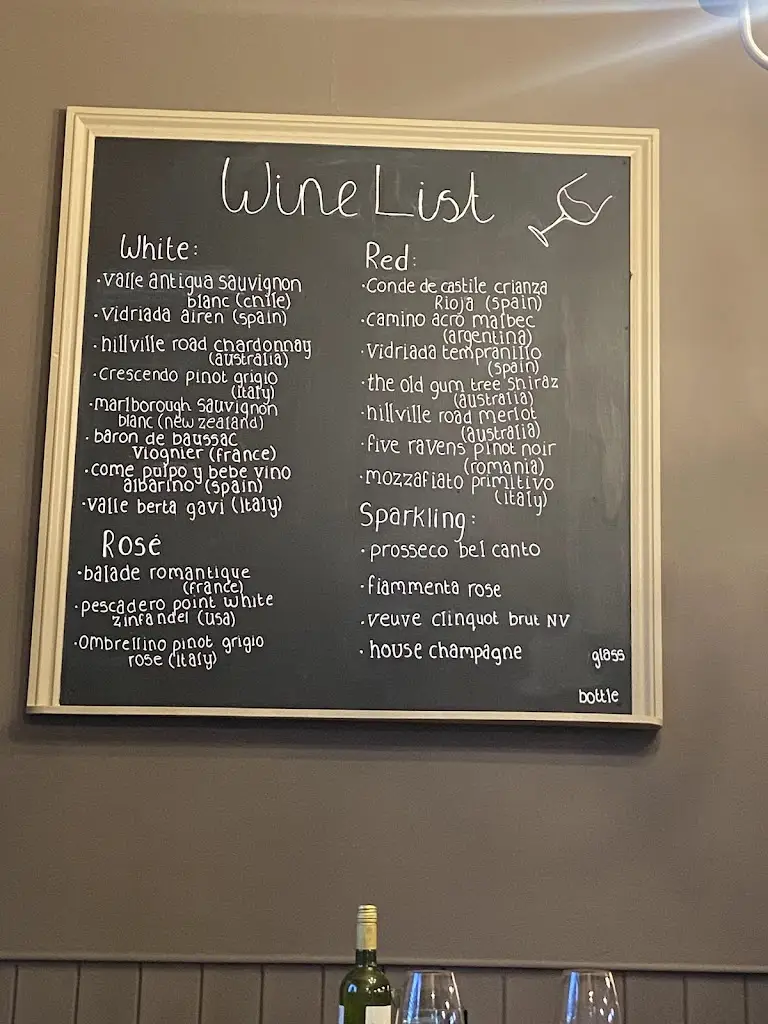 Wine List
White:
·valle antigua sauvignon
blanc (chile)
·vidriada airen (spain)
·hillville road chardonnay
(australia)
·crescendo pinot grigio
(italy)
·marlborough sauvignon
blanc (new zealand)
·baron de baussac
viognier (france)
·come pulpo y bebe vino
albarino (spain)
·valle berta gavi (italy)
Rosé
·balade romantique
(france)
·pescadero point white
zinfandel (usa)
·ombrellino pinot grigio
rose (italy)
Red:
·Conde de castile crianza
Rioja (spain)
·camino acro malbec
(argentina)
·vidriada tempranillo
(spain)
·the old gum tree shiraz
(australia)
·hillville road merlot
(australia)
·five ravens pinot noir
(romania)
·mozzafiato primitivo
(italy)
Sparkling:
·prosseco bel canto
·fiammenta rose
·veuve clinquot brut NV
·house champagne
glass
bottle